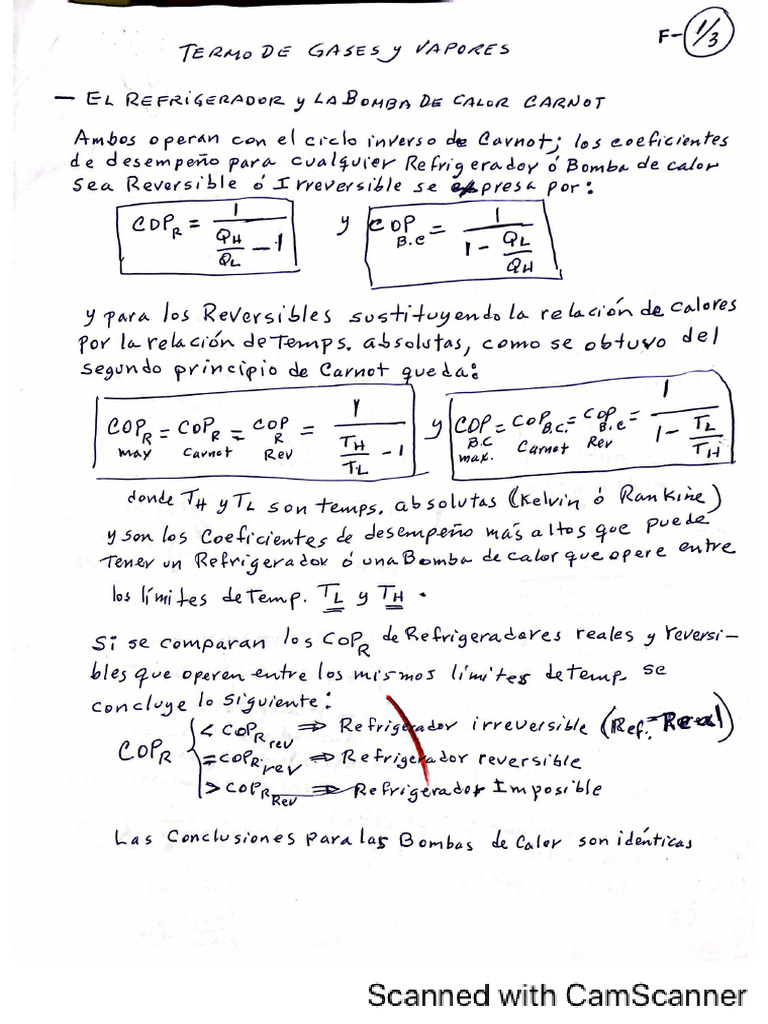 F-1/3
TERMO DE GASES y VAPORES
— EL REFRIGERADOR y LA BOMBA DE CALOR CARNOT
Ambos operan con el ciclo inverso de Carnot; los coeficientes
de desempeño para cualquier Refrigerador ó Bomba de calor
sea Reversible ó Irreversible se expresa por:
COP_R = 1 / (Q_H/Q_L − 1) y COP_B.C = 1 / (1 − Q_L/Q_H)
y para los Reversibles sustituyendo la relación de calores
por la relación de temps. absolutas, como se obtuvo del
segundo principio de Carnot queda:
COP_R max = COP_R Carnot = COP_R Rev = 1 / (T_H/T_L − 1) y COP_B.C max. = COP_B.C. Carnot = COP_B.C Rev = 1 / (1 − T_L/T_H)
donde T_H y T_L son temps. absolutas (Kelvin ó Rankine)
y son los Coeficientes de desempeño más altos que puede
Tener un Refrigerador ó una Bomba de calor que opere entre
los límites de Temp. T_L y T_H.
Si se comparan los COP_R de Refrigeradores reales y reversi-
bles que operen entre los mismos límites de temp. se
concluye lo siguiente:
COP_R { < COP_R rev ⇒ Refrigerador irreversible (Ref. Real)
= COP_R rev ⇒ Refrigerador reversible
> COP_R Rev ⇒ Refrigerador Imposible
Las Conclusiones para las Bombas de Calor son idénticas
Scanned with CamScanner